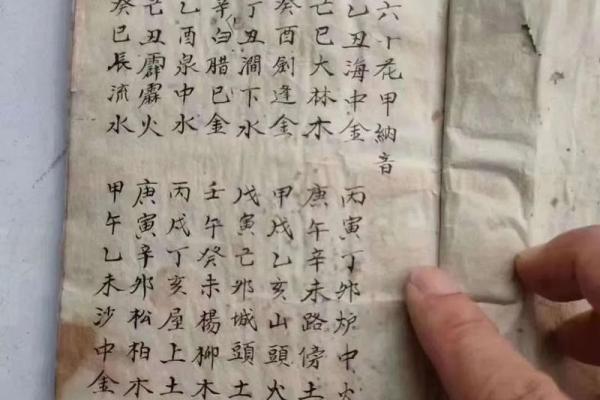 六十花甲納音
乙丑海中金
己巳大林木
癸酉劍逢金
丁丑澗下水
辛白腊巳金
乙酉泉中水
己丑霹靂火
癸巳長流水
丙寅丁卯炉中火
庚午辛未路傍土
甲戌乙亥山頭火
戊寅己卯城頭土
壬午癸未楊柳木
丙戌丁亥屋上土
庚寅辛卯松柏木
甲午乙未沙中金